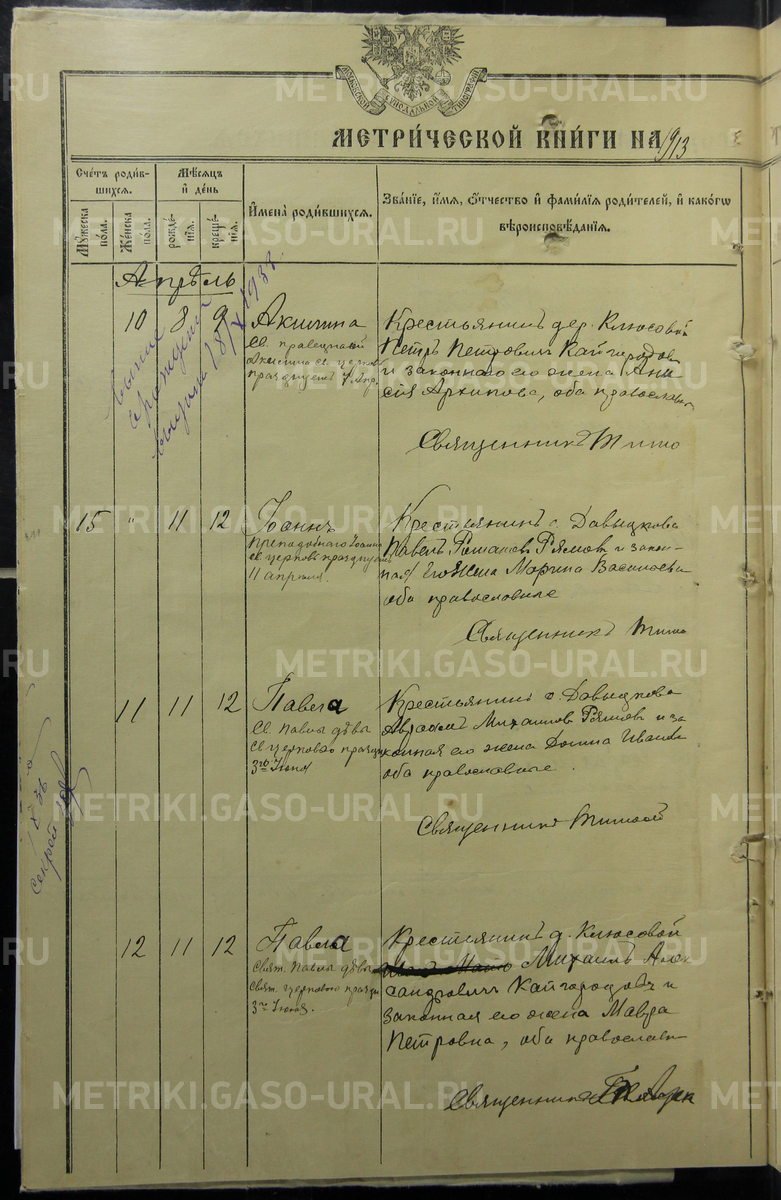 МОСКОВСКОЙ СѴНОДАЛЬНОЙ ТИПОГРАФІИ
МЕТРИ́ЧЕСКОЙ КНИ́ГИ НА 1913
Счетъ роди́в-
шихся.
Мѣсяцъ
и день
Мꙋжеска
пола.
Женска
пола.
рожде-
нія.
креще-
нія.
Имена̀ роди́вшихся.
Зва́ніе, и́мя, о҆́тчество и҆ фами́лія роди́телей, и҆ како́гѡ
вѣроисповѣ́данія.
Апрѣль
10 8 9 Акилина
Св. праведной
Акилины св. церков
празднуетъ 7 Апр.
Крестьянинъ дер. Клюсовой
Петръ Петровичъ Кайгородовъ
и законная его жена Ани-
сія Архипова, оба православн
Священникъ
15 " 11 12 Іоаннъ
Преподобнаго Іоанна
св. церковь празднуетъ
11 апрѣля.
Крестьянинъ с. Давыдкова
Павелъ Романовъ Рямовъ и закон-
ная его жена Марина Васильева
оба православные
Священникъ
11 11 12 Павла
Св. Павлы дѣвы
св. церковію праздн
3го Іюня
Крестьянинъ с. Давыдкова
Авраамъ Михаиловъ и за
конная его жена Домна Иванова
оба православные.
Священникъ
12 11 12 Павла
Свят. Павлы дѣвы
свят. церковію праздн
3го Іюня.
Крестьянинъ д. Клюсовой
Михаилъ Алек
сандровичъ Кайгородовъ и
законная его жена Мавра
Петровна, оба православн
Священникъ
METRIKI.GASO-URAL.RU